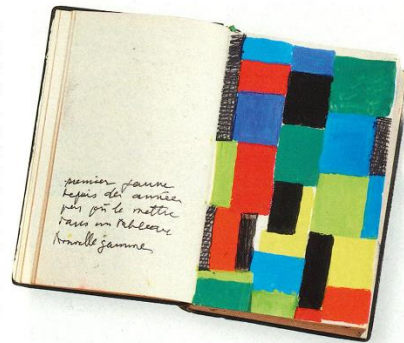 premier jaune
depuis des années
pu le mettre
dans un tableau
Nouvelle gamme